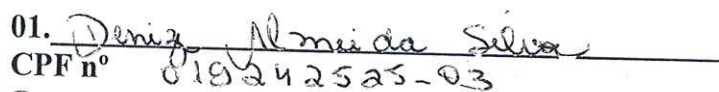 01. Deniz Almeida Silva
CPF nº 019242525-03